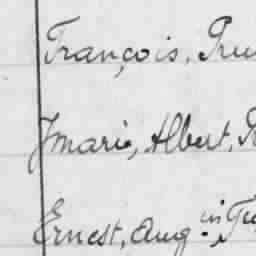 François, Pru
Jmarie, Albert, R
Ernest, Aug.in, Fr